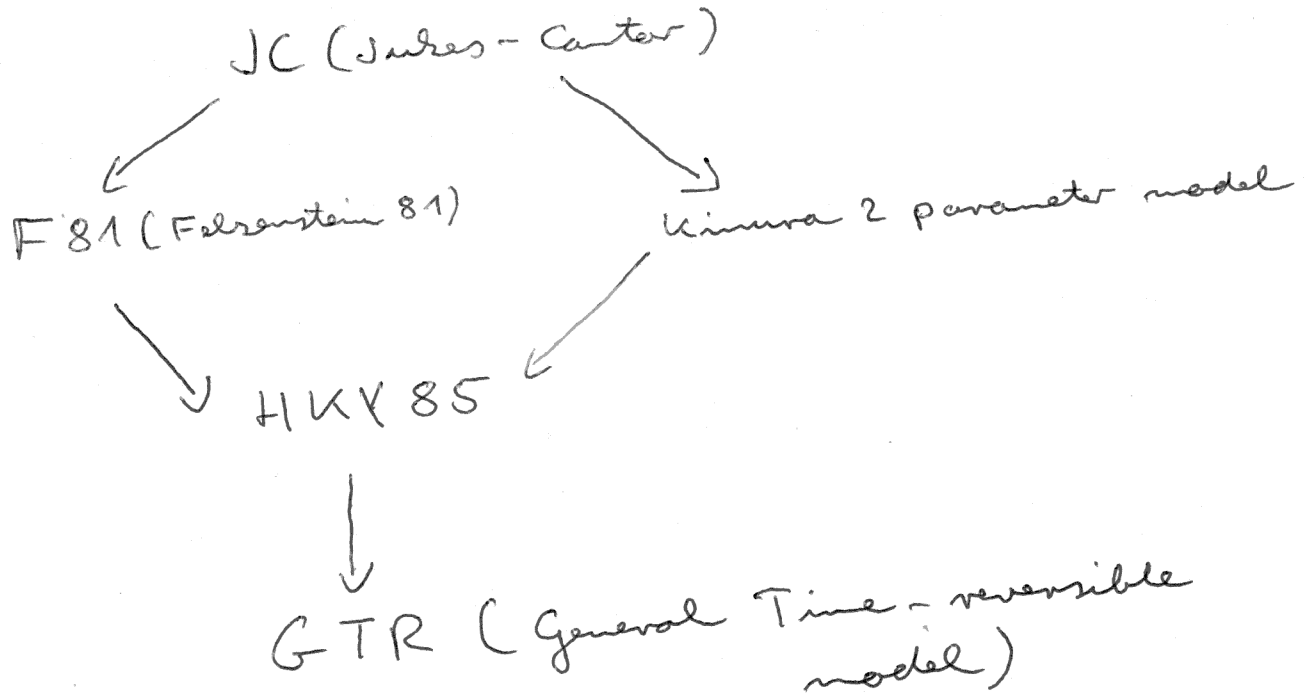 JC (Jukes-Cantor)
F81 (Felsenstein 81)
Kimura 2 parameter model
HKY85
GTR (General Time-reversible
model)